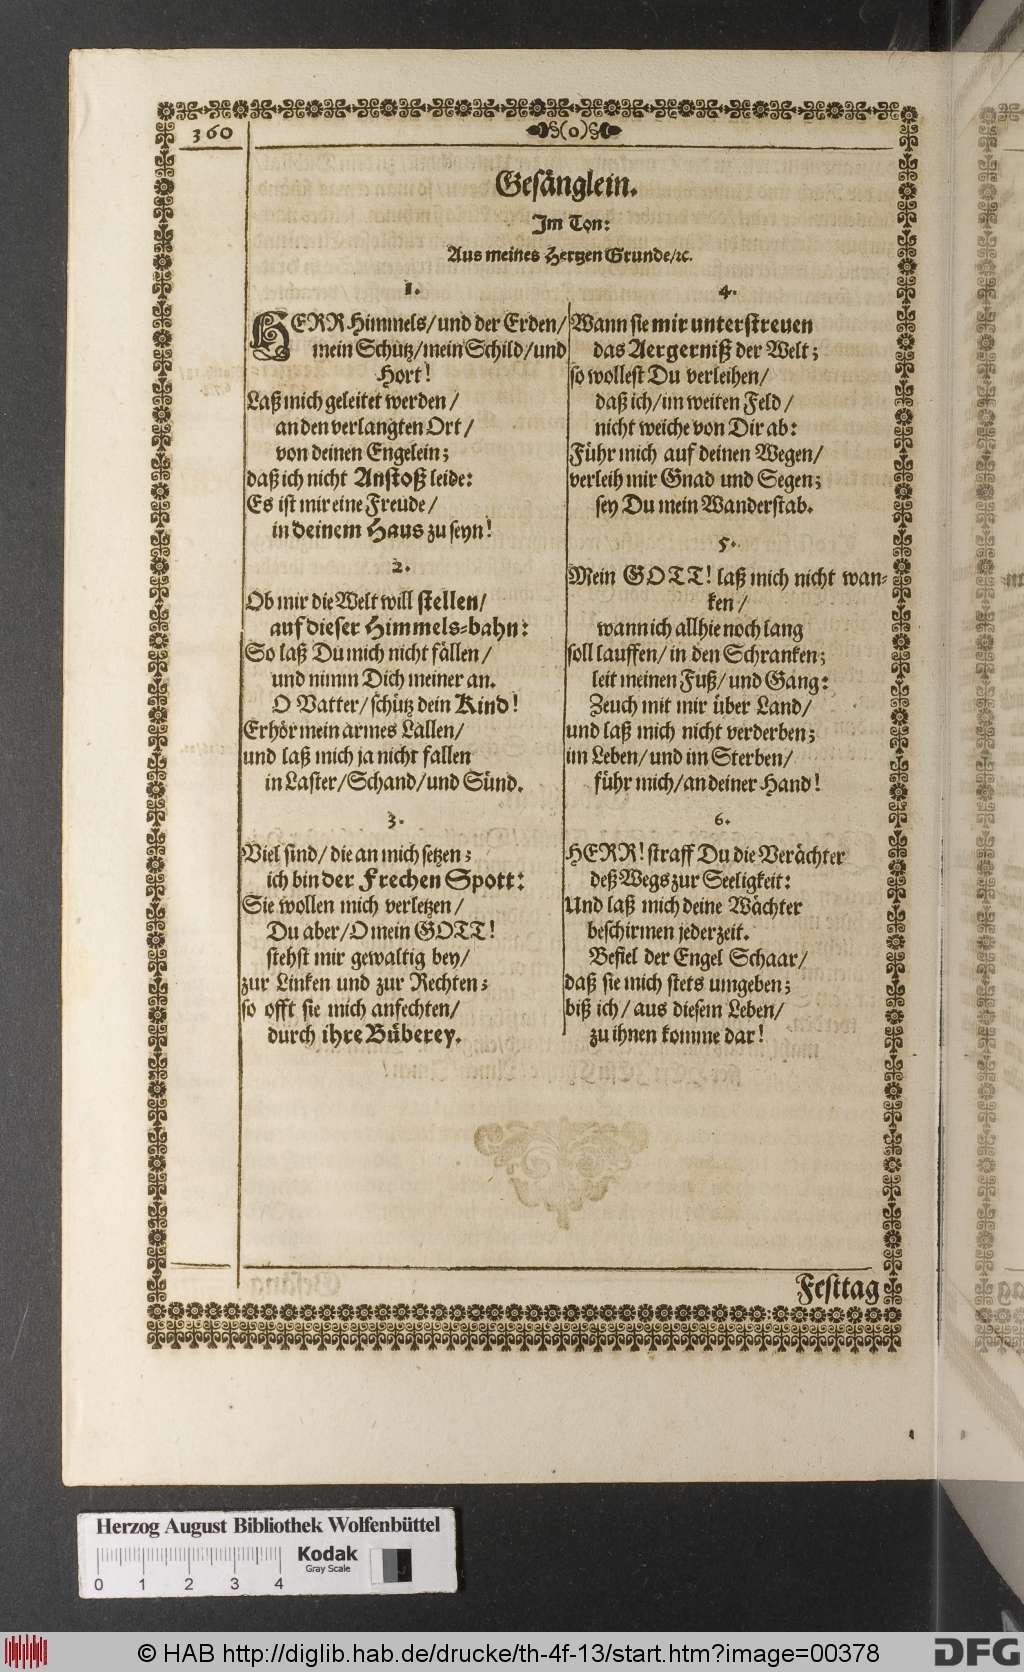 360
§(o)§
Gesänglein.
Im Ton:
Aus meines Hertzen Grunde/ꝛc.
1.
HERR Himmels/und der Erden/
mein Schütz/mein Schild/und
Hort!
Laß mich geleitet werden/
an den verlangten Ort/
von deinen Engelein;
daß ich nicht Anstoß leide:
Es ist mir eine Freude/
in deinem Haus zu seyn!
2.
Ob mir die Welt will stellen/
auf dieser Himmels-bahn:
So laß Du mich nicht fällen/
und nimm Dich meiner an.
O Vatter/schütz dein Kind!
Erhör mein armes Lallen/
und laß mich ja nicht fallen
in Laster/Schand/und Sünd.
3.
Viel sind/die an mich setzen;
ich bin der Frechen Spott:
Sie wollen mich verletzen/
Du aber/O mein GOTT!
stehst mir gewaltig bey/
zur Linken und zur Rechten;
so offt sie mich anfechten/
durch ihre Büberey.
4.
Wann sie mir unterstreuen
das Aergerniß der Welt;
so wollest Du verleihen/
daß ich/im weiten Feld/
nicht weiche von Dir ab:
Führ mich auf deinen Wegen/
verleih mir Gnad und Segen;
sey Du mein Wanderstab.
5.
Mein GOTT! laß mich nicht wan-
ken/
wann ich allhie noch lang
soll lauffen/in den Schranken;
leit meinen Fuß/und Gang:
Zeuch mit mir über Land/
und laß mich nicht verderben;
im Leben/und im Sterben/
führ mich/an deiner Hand!
6.
HERR! straff Du die Verächter
deß Wegs zur Seeligkeit:
Und laß mich deine Wächter
beschirmen jederzeit.
Befiel der Engel Schaar/
daß sie mich stets umgeben;
biß ich/aus diesem Leben/
zu ihnen komme dar!
Festtag
Herzog August Bibliothek Wolfenbüttel
Kodak
Gray Scale
0 1 2 3 4
© HAB http://diglib.hab.de/drucke/th-4f-13/start.htm?image=00378
DFG